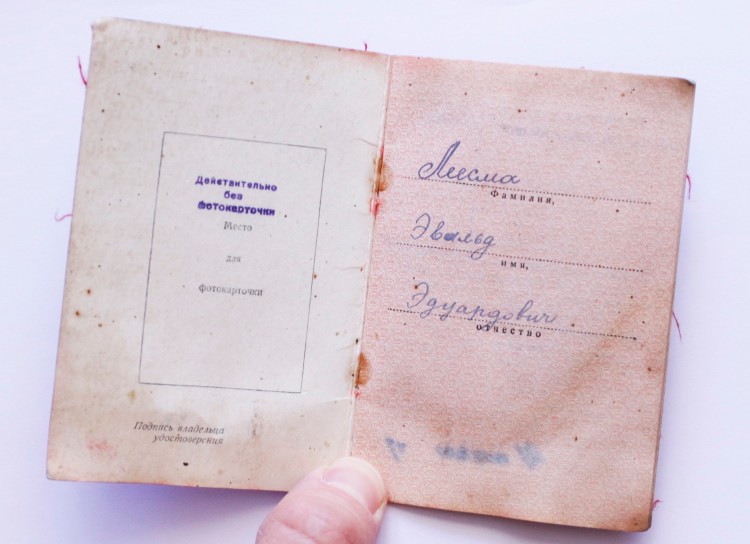 Действительно
без
фотокарточки
Место
для
фотокарточки
Подпись владельца
удостоверения
Лисма
Фамилия,
Эвальд
имя,
Эдуардович
отчество